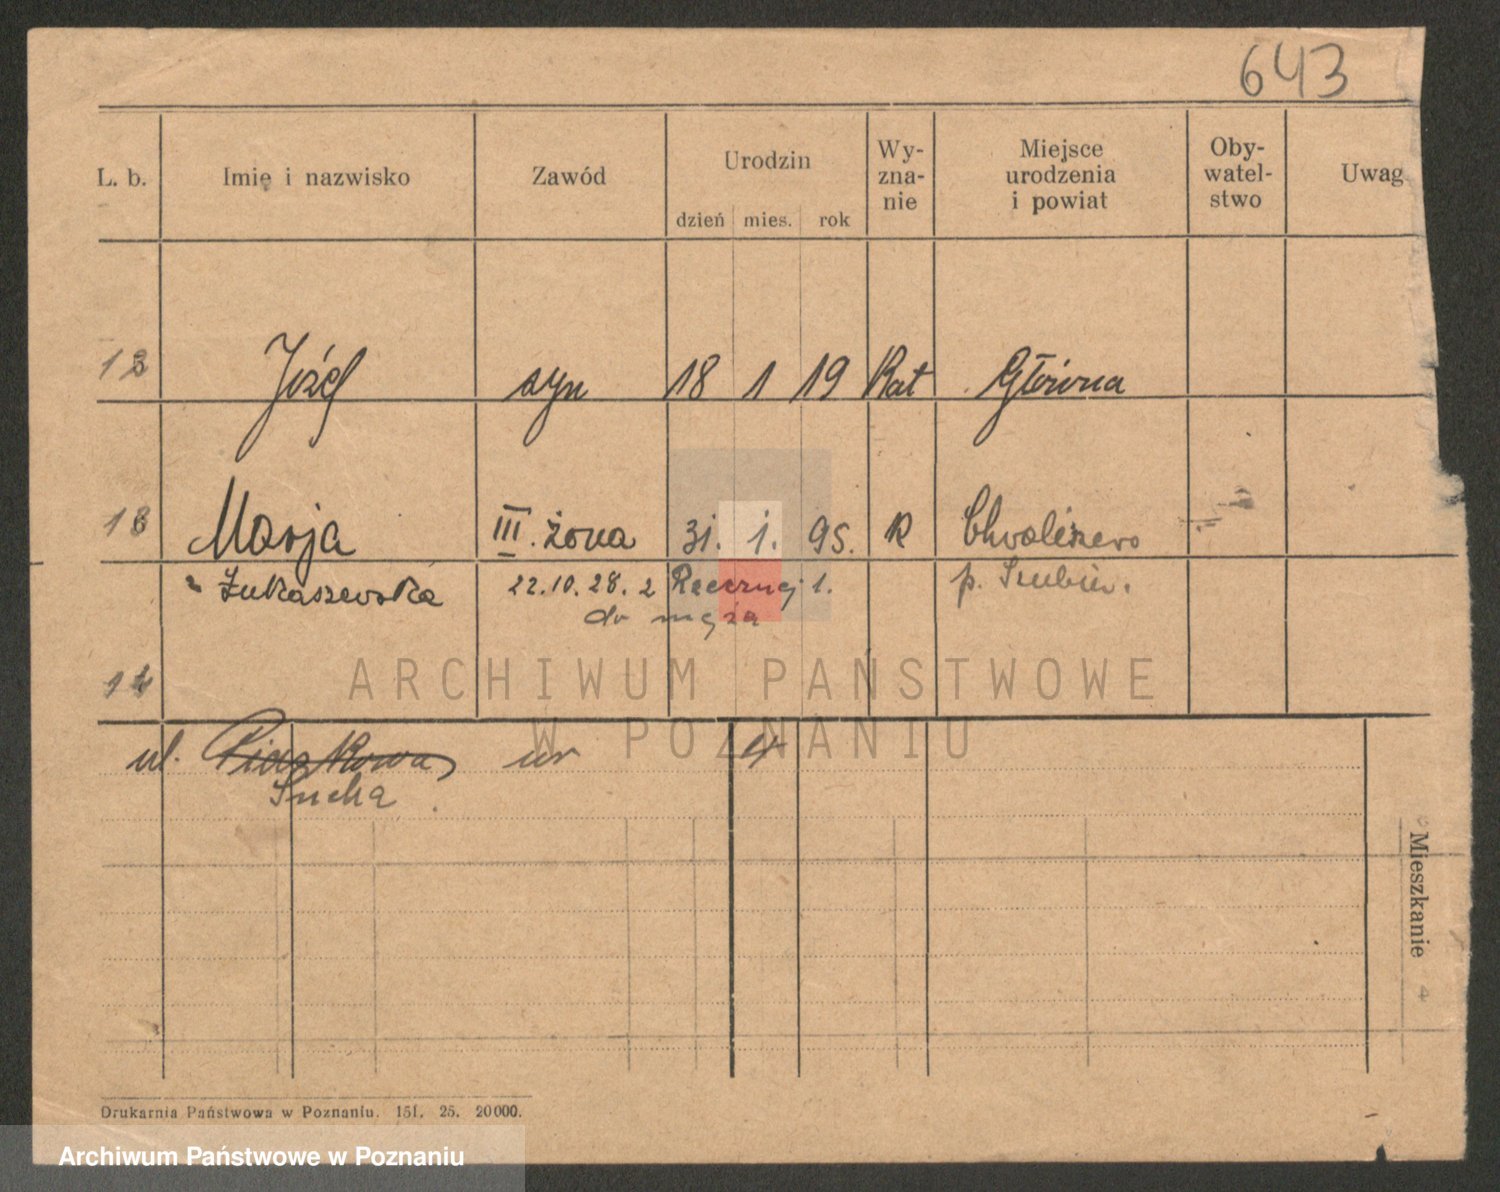 643
L. b. Imię i nazwisko Zawód Urodzin dzień mies. rok Wy-zna-nie Miejsce urodzenia i powiat Oby-watel-stwo Uwag
13 Józef syn 18 1 19 Kat Główna
Marja III. żona 31. 1. 95. R
Łukaszewska 22.10.28. z Rzecznej 1. p. Szubin.
do męża
14
ul. Piaskowa
Sucha 4
Mieszkanie
Drukarnia Państwowa w Poznaniu. 151. 25. 20000.
ARCHIWUM PAŃSTWOWE
W POZNANIU
Archiwum Państwowe w Poznaniu